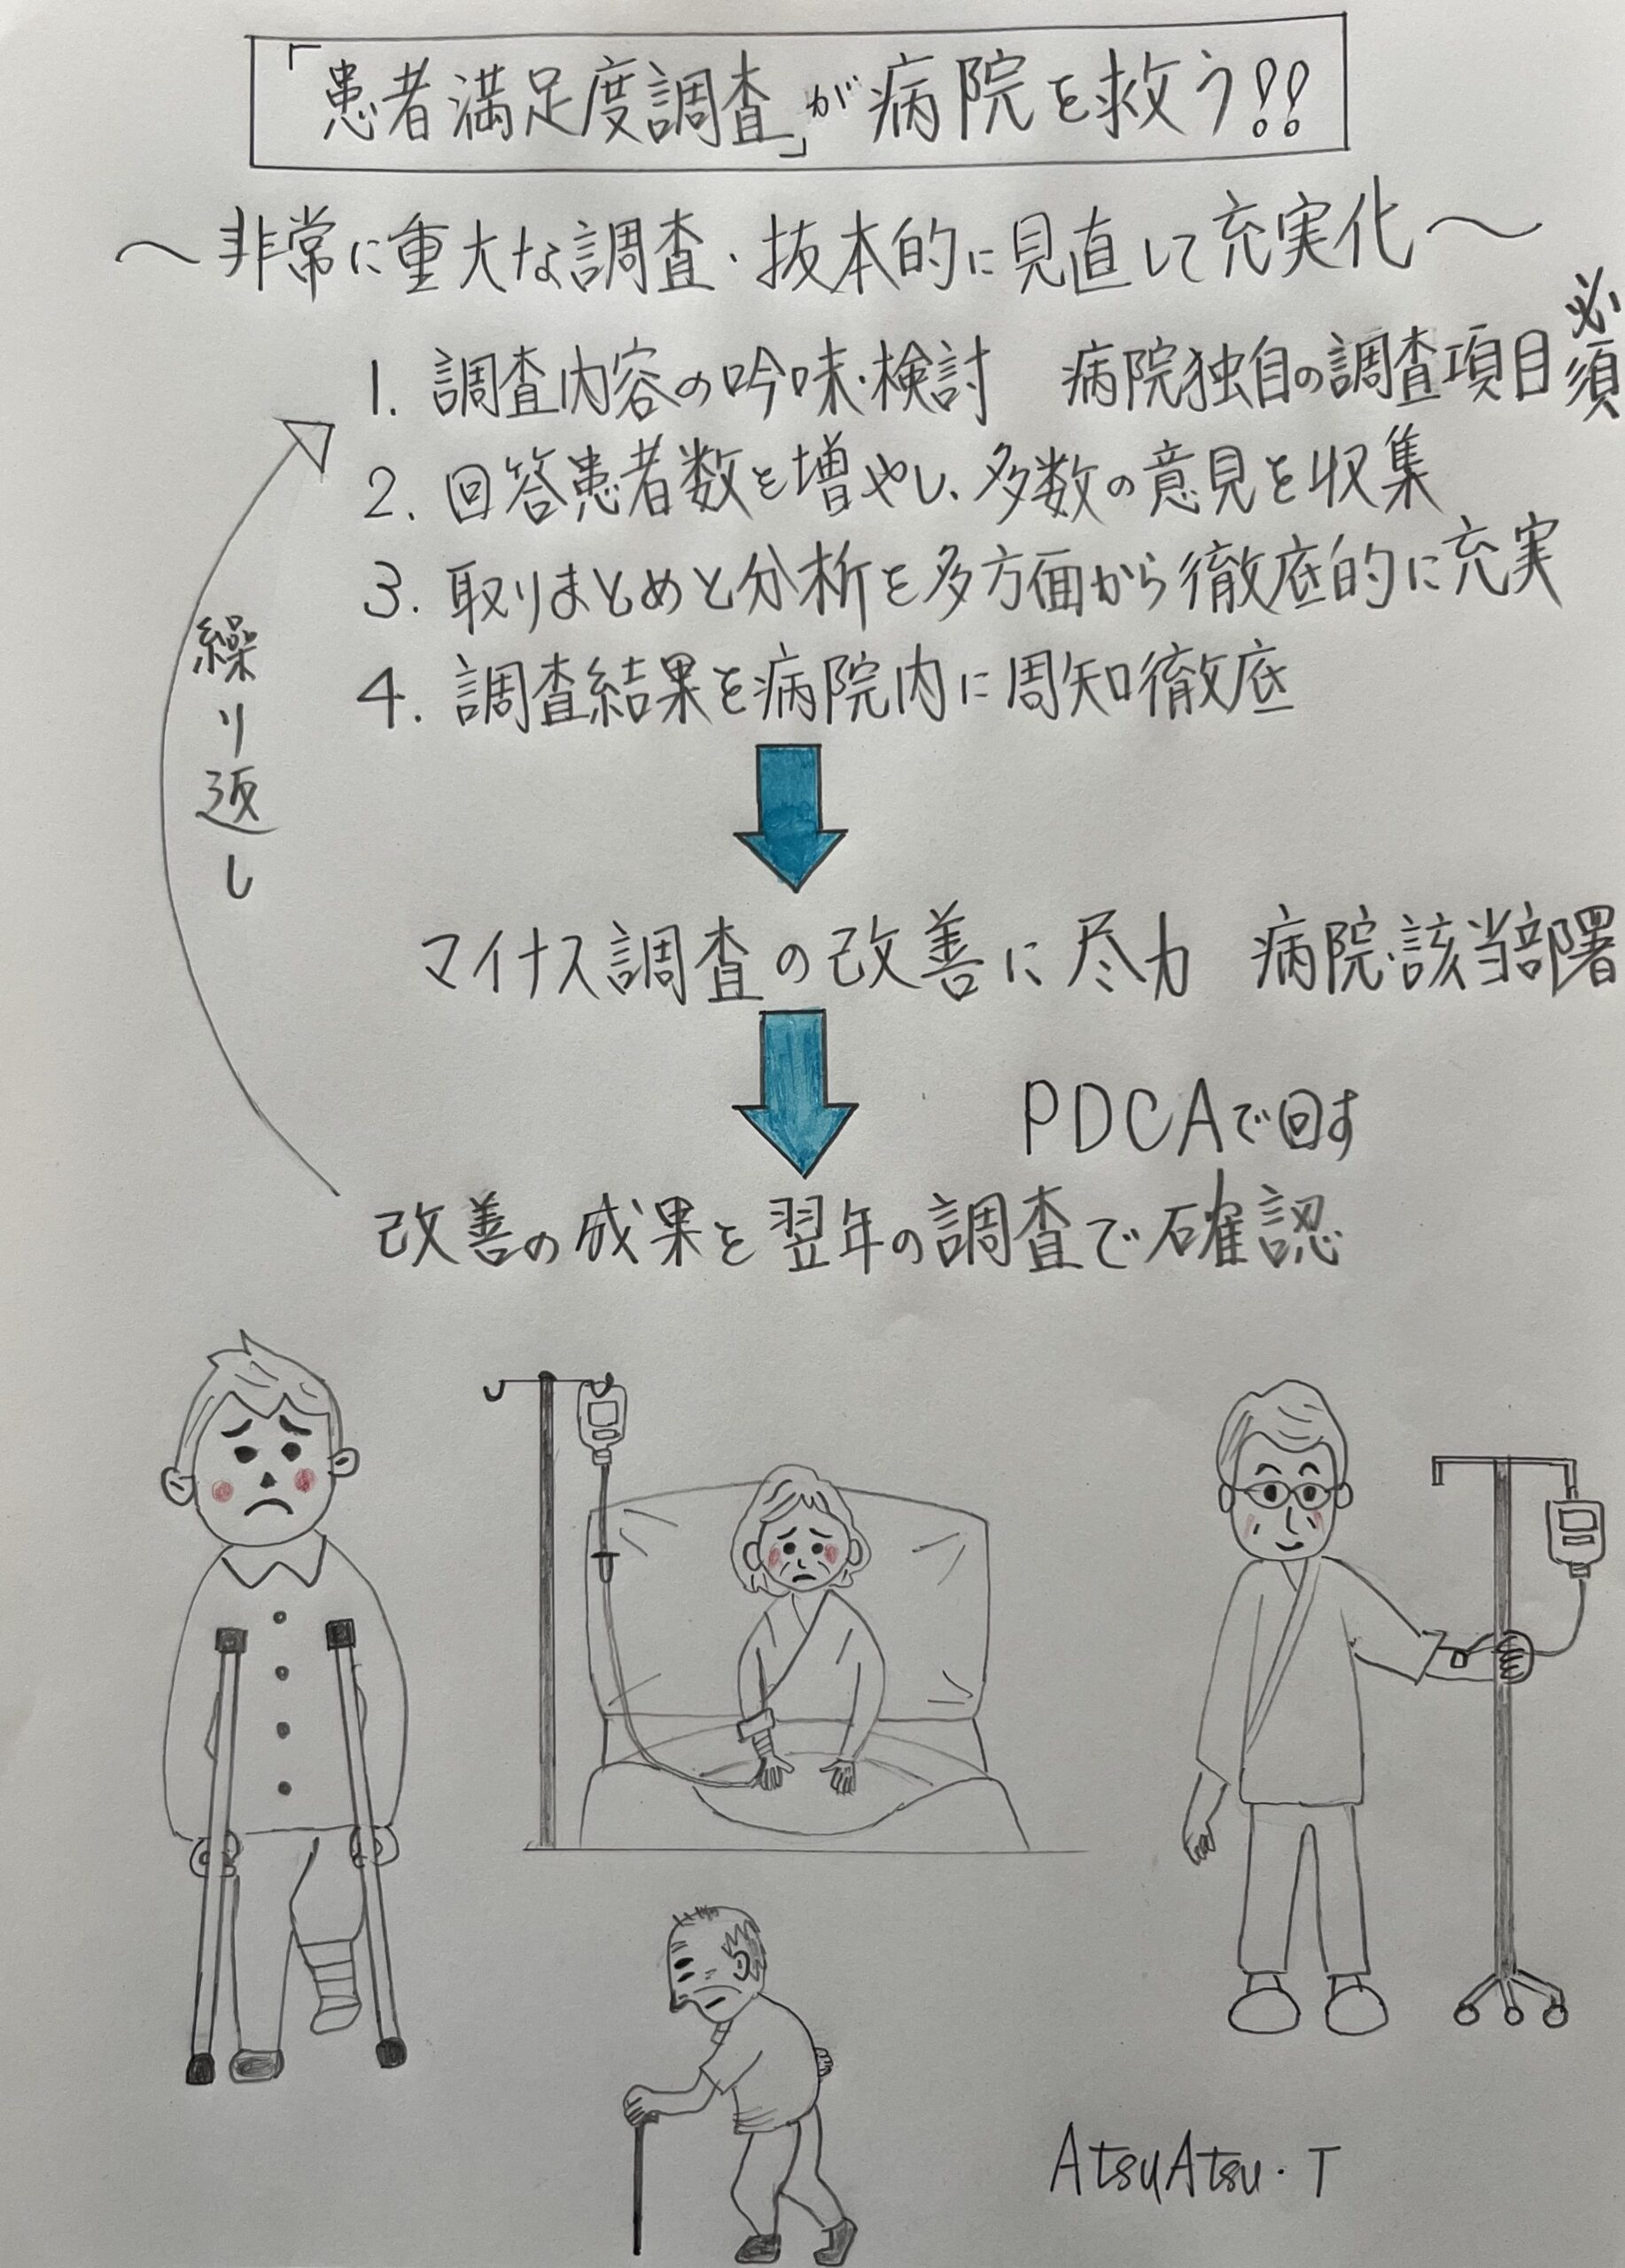 「患者満足度調査」が病院を救う!!
～非常に重大な調査・抜本的に見直して充実化～
1. 調査内容の吟味・検討　病院独自の調査項目必須
2. 回答患者数を増やし、多数の意見を収集
3. 取りまとめと分析を多方面から徹底的に充実
4. 調査結果を病院内に周知徹底
繰り返し
マイナス調査の改善に尽力　病院・該当部署
PDCAで回す
改善の成果を翌年の調査で確認
AtsuAtsu・T